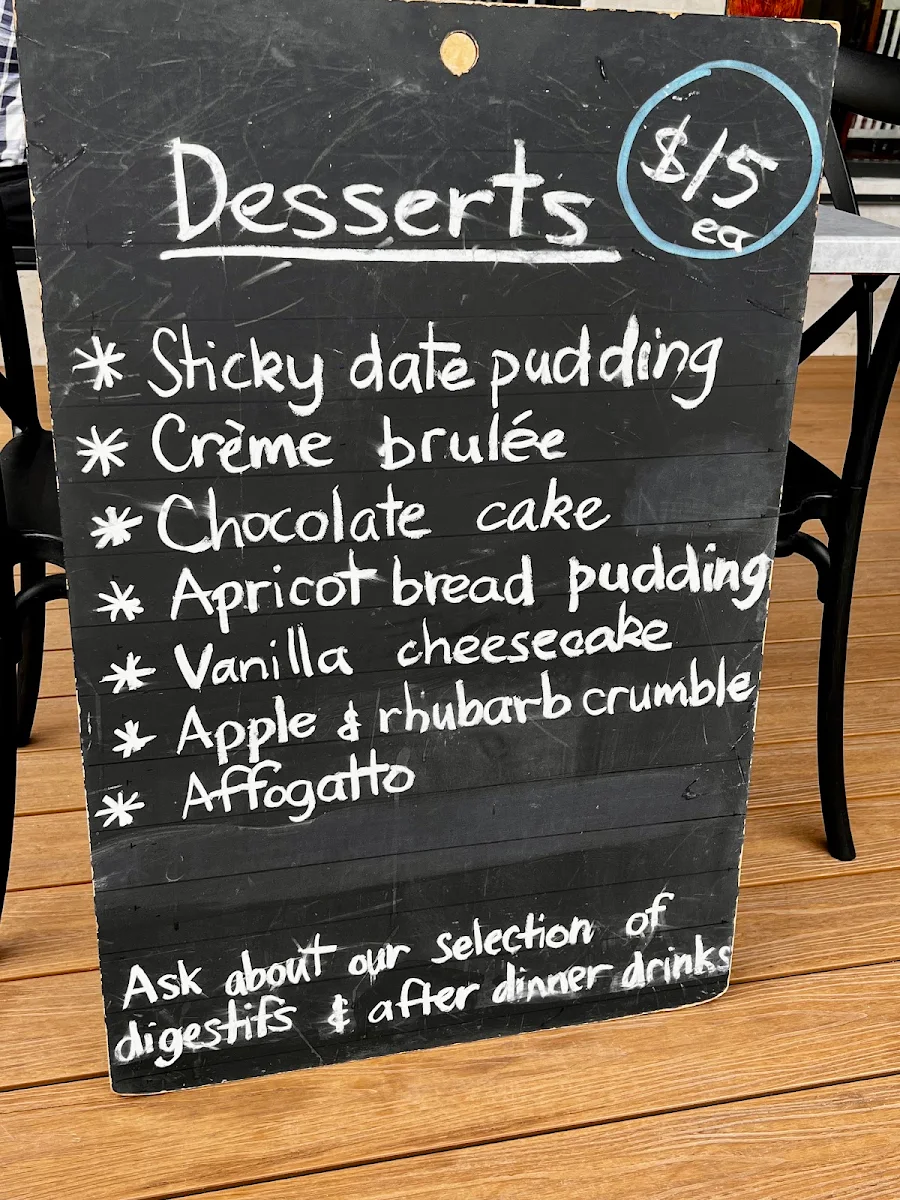 Desserts
$15
ea
* Sticky date pudding
* Crème brulée
* Chocolate cake
* Apricot bread pudding
* Vanilla cheesecake
* Apple & rhubarb crumble
* Affogatto
Ask about our selection of
digestifs & after dinner drinks